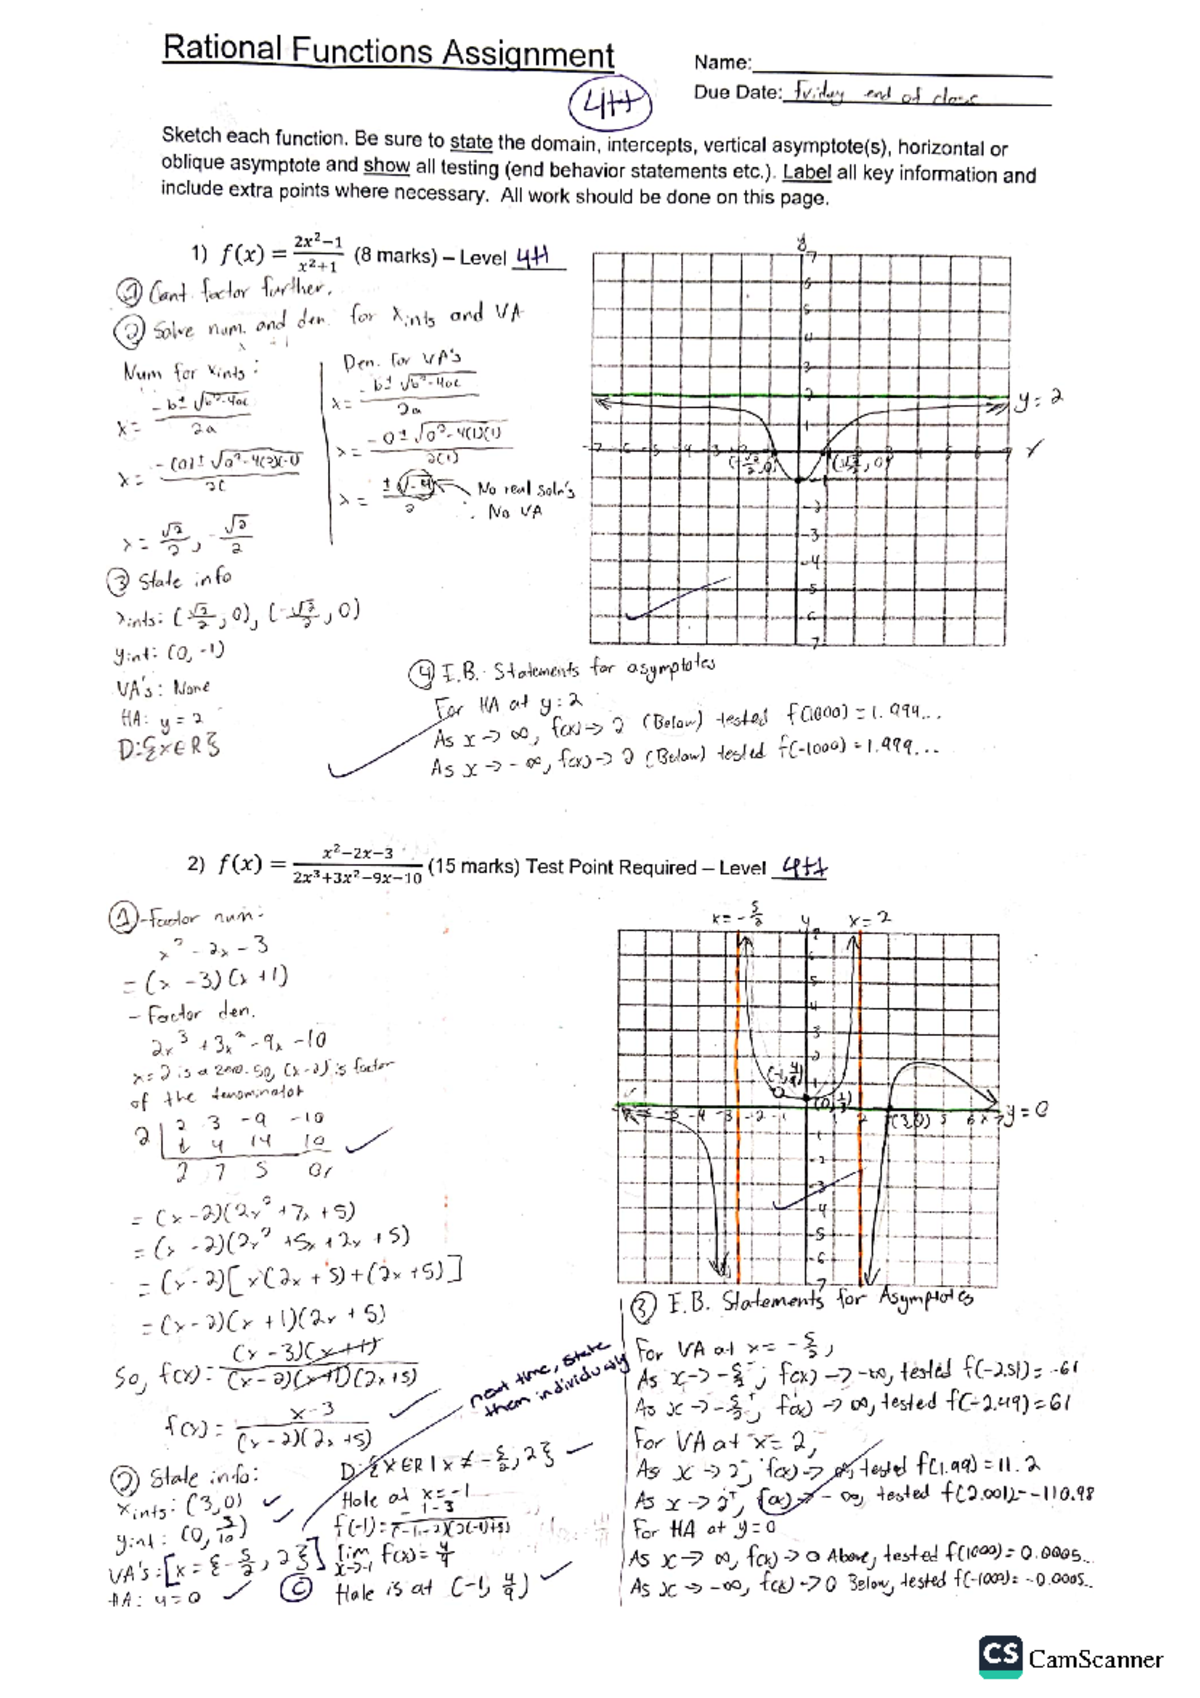 Rational Functions Assignment
Name:
Due Date: Friday end of class
4++
Sketch each function. Be sure to state the domain, intercepts, vertical asymptote(s), horizontal or
oblique asymptote and show all testing (end behavior statements etc.). Label all key information and
include extra points where necessary. All work should be done on this page.
1) f(x) = (2x²−1)/(x²+1) (8 marks) – Level 4++
① Cant factor further.
② Solve num. and den. for xints and VA
Num for xints:
x = (-b±√(b²-4ac))/2a
x = (-(0)±√(0²-4(2)(-1)))/2(
x = √2/2, -√2/2
Den. for VA's
x = (-b±√(b²-4ac))/2a
x = (-0±√(0²-4(1)(1)))/2(1)
x = ±√-4/2 No real soln's
∴ No VA
③ State info
xints: (√2/2, 0), (-√2/2, 0)
yint: (0, -1)
VA's: None
HA: y = 2
D:{x∈R}
y = 2
(-√2/2, 0) (√2/2, 0)
④ E.B. Statements for asymptotes
For HA at y=2
As x→∞, f(x)→2 (Below) tested f(1000)=1.999...
As x→-∞, f(x)→2 (Below) tested f(-1000)=1.999...
2) f(x) = (x²−2x−3)/(2x³+3x²−9x−10) (15 marks) Test Point Required – Level 4++
① -Factor num:
x² - 2x - 3
= (x - 3)(x + 1)
- Factor den.
2x³ + 3x² - 9x - 10
x=2 is a zero. So, (x-2) is factor
of the denominator
2 | 2 3 -9 -10
↓ 4 14 10
2 7 5 0
= (x-2)(2x² + 7x + 5)
= (x-2)(2x² + 5x + 2x + 5)
= (x-2)[x(2x + 5) + (2x + 5)]
= (x-2)(x + 1)(2x + 5)
So, f(x) = (x-3)(x+1)/(x-2)(x+1)(2x+5)
f(x) = x-3/(x-2)(2x+5)
next time, state
them individually
② State info:
xints: (3,0)
yint: (0, 3/10)
VA's: [x = {-5/2, 2}]
HA: y = 0
D:{x∈R | x ≠ -5/2, 2}
Hole at x = -1
f(-1) = -1-3/(-1-2)(2(-1)+5)
lim x→-1 f(x) = 4/9
Ⓒ Hole is at (-1, 4/9)
x = -5/2 y x = 2
(-1, 4/9)
(3,0)
y = 0
③ E.B. Statements for Asymptotes
For VA at x = -5/2,
As x→-5/2⁻, f(x)→-∞, tested f(-2.51) = -61
As x→-5/2⁺, f(x)→∞, tested f(-2.49) = 61
For VA at x = 2,
As x→2⁻, f(x)→∞, tested f(1.99) = 11.2
As x→2⁺, f(x)→-∞, tested f(2.001) = -110.98
For HA at y=0
As x→∞, f(x)→0 Above, tested f(1000) = 0.0005...
As x→-∞, f(x)→0 Below, tested f(-1000) = -0.0005..
CS CamScanner